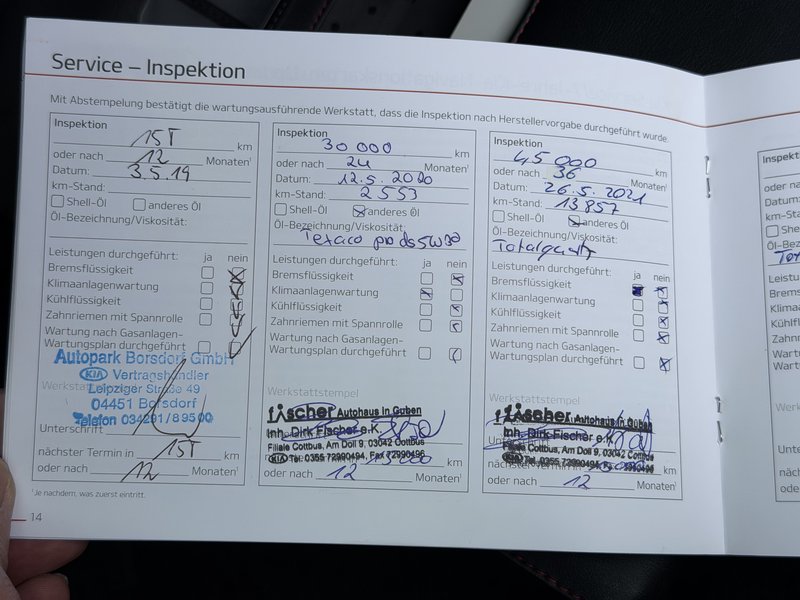 Service – Inspektion
Mit Abstempelung bestätigt die wartungsausführende Werkstatt, dass die Inspektion nach Herstellervorgabe durchgeführt wurde.
Inspektion
15T km
oder nach 12 Monaten¹
Datum: 3.5.19
km-Stand:
Shell-Öl anderes Öl
Öl-Bezeichnung/Viskosität:
Leistungen durchgeführt: ja nein
Bremsflüssigkeit
Klimaanlagenwartung
Kühlflüssigkeit
Zahnriemen mit Spannrolle
Wartung nach Gasanlagen-
Wartungsplan durchgeführt
Autopark Borsdorf GmbH
KIA Vertragshändler
Leipziger Straße 49
04451 Borsdorf
Telefon 034291/89500
Unterschrift
nächster Termin in 15T km
oder nach 12 Monaten¹
¹Je nachdem, was zuerst eintritt.
14
Inspektion
30 000 km
oder nach 24 Monaten¹
Datum: 12.5.2020
km-Stand: 2553
Shell-Öl anderes Öl
Öl-Bezeichnung/Viskosität:
Texaco pro ds 5W30
Leistungen durchgeführt: ja nein
Bremsflüssigkeit
Klimaanlagenwartung
Kühlflüssigkeit
Zahnriemen mit Spannrolle
Wartung nach Gasanlagen-
Wartungsplan durchgeführt
Werkstattstempel
fischer Autohaus in Guben
Inh. Dirk Fischer e.K.
Filiale Cottbus, Am Doll 9, 03042 Cottbus
KIA Tel. 0355 72990494, Fax 72990496
15000 km
oder nach 12 Monaten¹
Inspektion
45 000 km
oder nach 36 Monaten¹
Datum: 26.5.2021
km-Stand: 13857
Shell-Öl anderes Öl
Öl-Bezeichnung/Viskosität:
Leistungen durchgeführt: ja nein
Bremsflüssigkeit
Klimaanlagenwartung
Kühlflüssigkeit
Zahnriemen mit Spannrolle
Wartung nach Gasanlagen-
Wartungsplan durchgeführt
Werkstattstempel
fischer Autohaus in Guben
Inh. Dirk Fischer e.K.
Filiale Cottbus, Am Doll 9, 03042 Cottbus
KIA Tel. 0355 72990494, Fax 72990496
km
oder nach 12 Monaten¹
Inspekt
oder na
Datum:
km-Sta
She
Öl-Bez
Leistu
Brems
Klima
Kühlf
Zahn
Wart
Wart
Unter
näch
oder